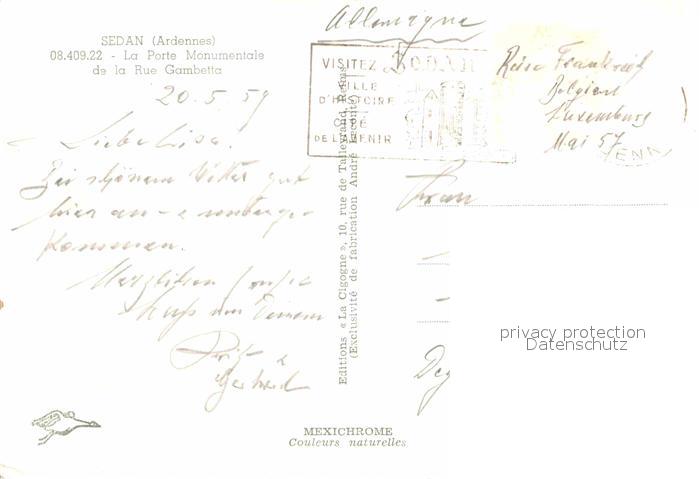 SEDAN (Ardennes)
08.409.22 - La Porte Monumentale
de la Rue Gambetta
20.5.59
Liebe Lisa.
Bei schönem Wetter gut
hier an-
kommen.
Herzlichen
Kuss von Deinem
Fritz &
Gertrud
Editions « La Cigogne », 10, rue de Talleyrand, Reims
(Exclusivité de fabrication André Leconte)
Allemagne
VISITEZ SEDAN
VILLE
D'HISTOIRE
CITÉ
DE L'AVENIR
Reise Frankreich
Belgien
Luxemburg
Mai 57
Frau
privacy protection
Datenschutz
MEXICHROME
Couleurs naturelles